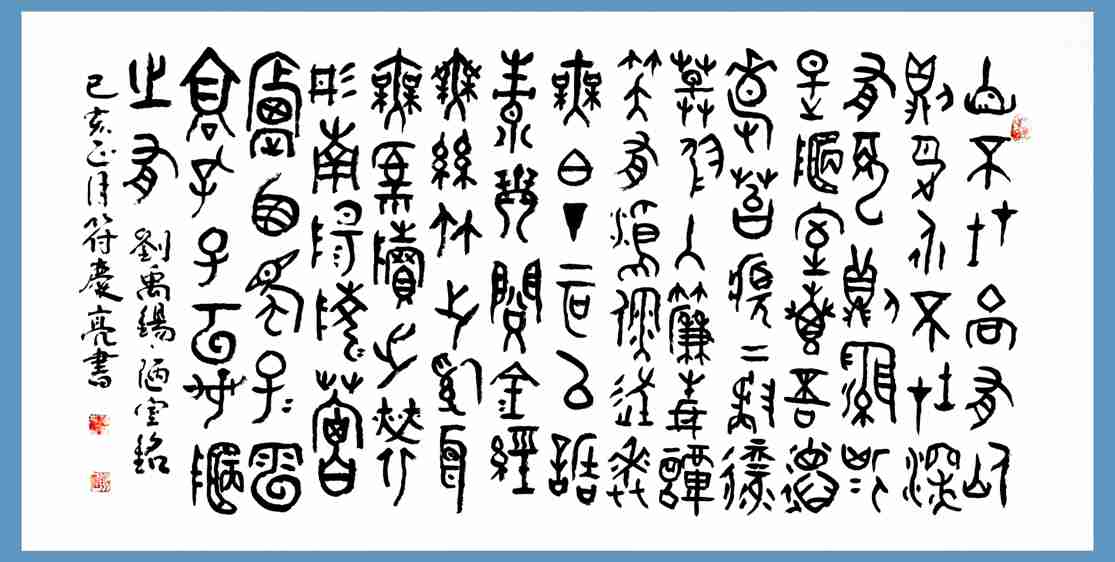 山不在高有仙
則名水不在深
有龍則靈斯
是陋室惟吾德
馨苔痕上階綠
草色入簾青談
笑有鴻儒往來
無白丁可以調
素琴閱金經
無絲竹之亂耳
無案牘之勞
形南陽諸葛
廬西蜀子雲
亭孔子云何陋
之有 劉禹錫陋室銘
己亥正月符慶亮書